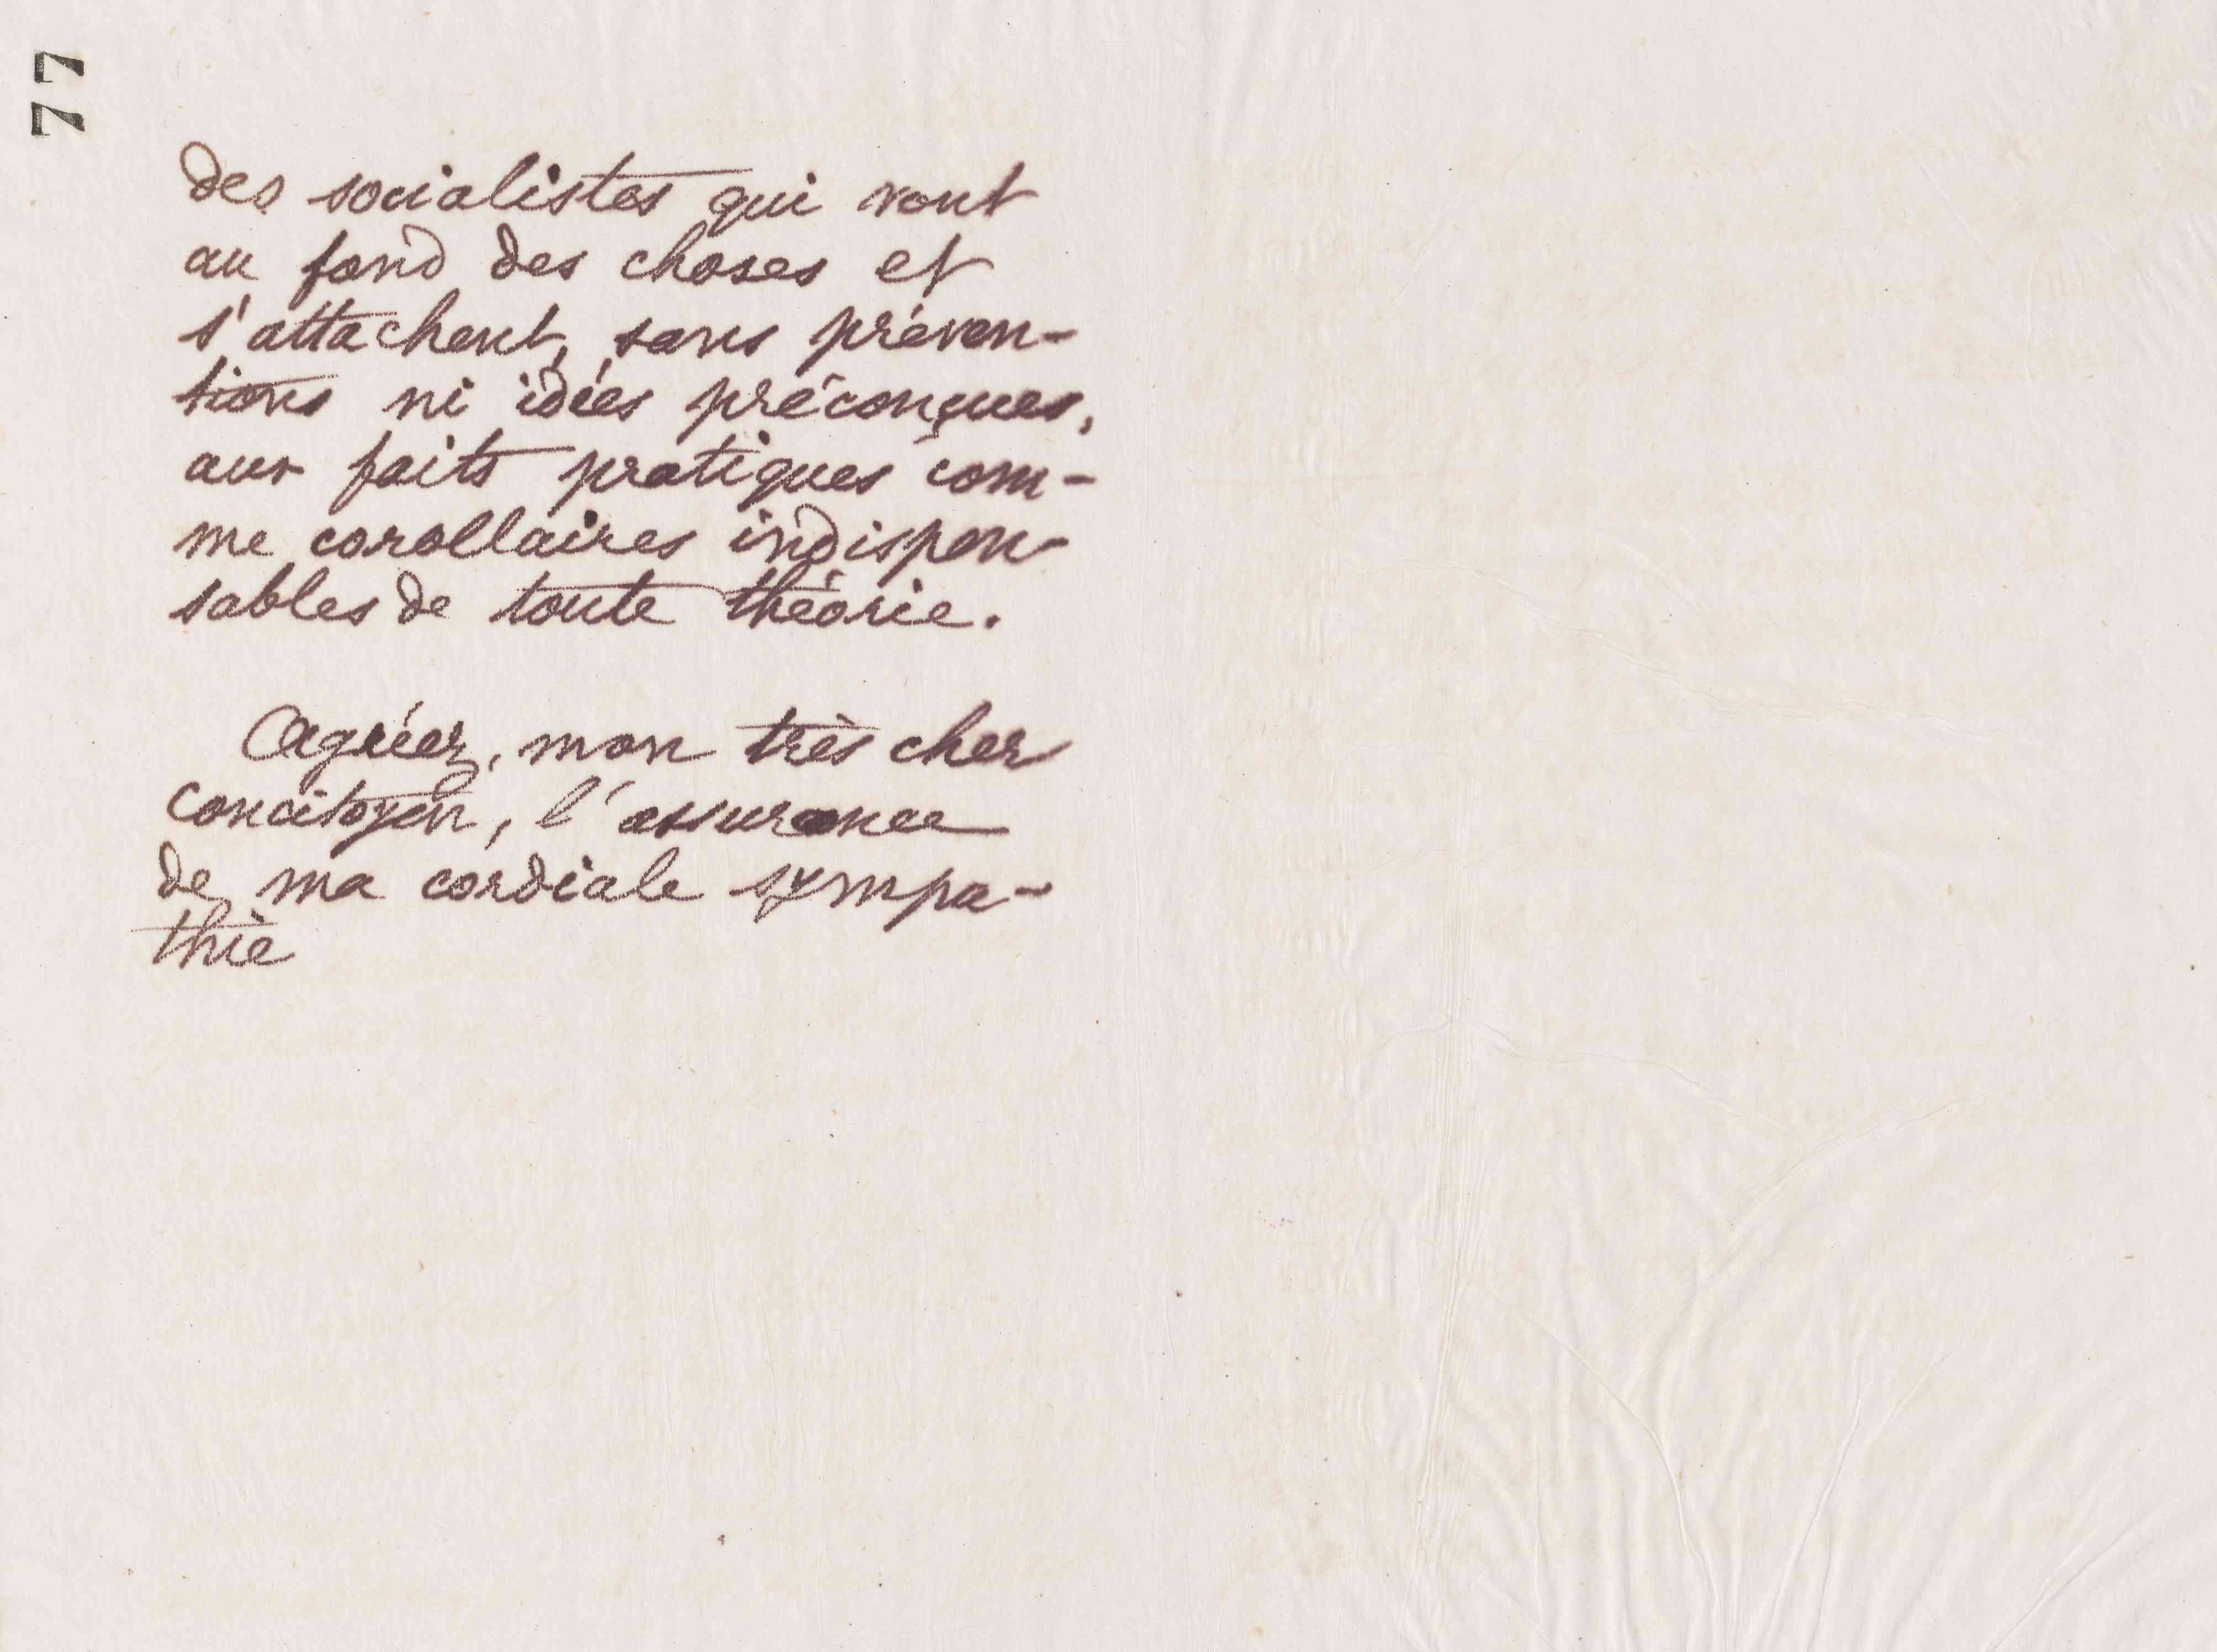 77
des socialistes qui vont
au fond des choses et
s'attachent, sans préven-
tions ni idées préconçues,
aux faits pratiques com-
me corollaires indispen-
sables de toute théorie.
Agréez, mon très cher
concitoyen, l'assurance
de ma cordiale sympa-
thie